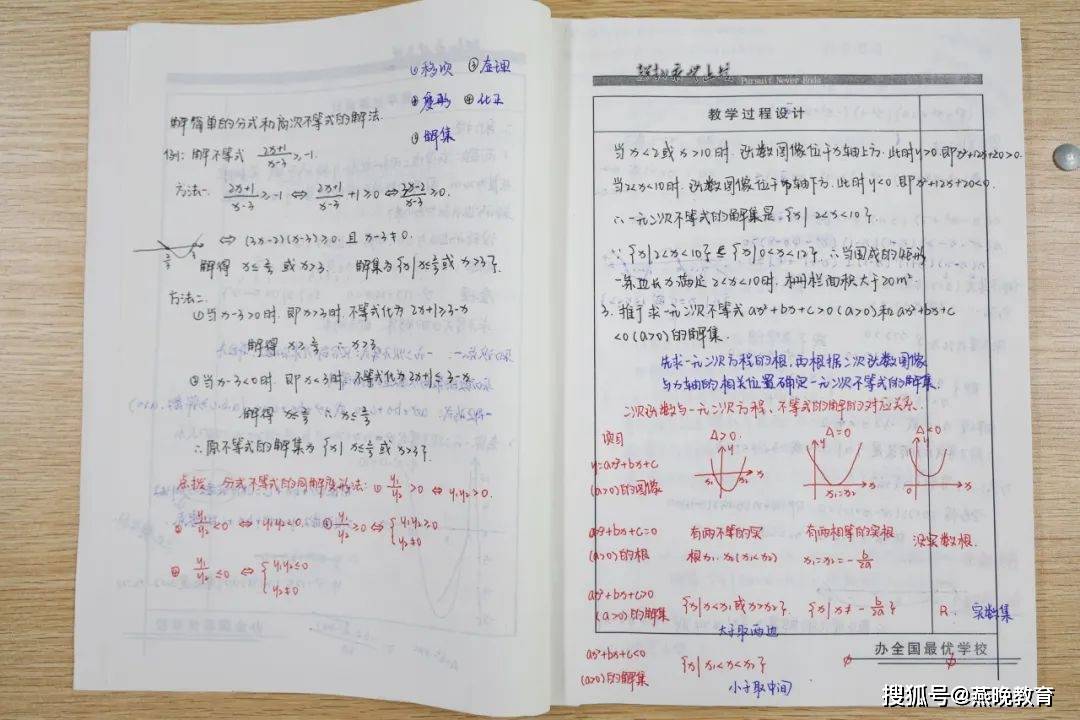 ①移项 ③整理
②变形 ④化正
⑤解集
解简单的分式和高次不等式的解法.
例: 解不等式 (2x+1)/(x-3) ≥ -1.
方法一. (2x+1)/(x-3) ≥ -1 ⇔ (2x+1)/(x-3) +1 ≥ 0 ⇔ (3x-2)/(x-3) ≥ 0.
⇔ (3x-2)(x-3) ≥ 0. 且 x-3≠0.
解得 x≤2/3 或 x>3. 解集为{x| x≤2/3 或 x>3}.
方法二.
①当x-3>0时, 即x>3时, 不等式化为 2x+1≥3-x
解得 x≥2/3 ∴ x>3
②当x-3<0时. 即x<3时. 不等式化为2x+1≤3-x
解得 x≤2/3 ∴ x≤2/3
∴原不等式的解集为{x| x≤2/3 或 x>3}.
点拨 分式不等式的同解变形法: ① y₁/y₂ >0 ⇔ y₁y₂>0.
② y₁/y₂ <0 ⇔ y₁y₂<0. ③ y₁/y₂ ≥0 ⇔ { y₁y₂≥0 y₂≠0
④ y₁/y₂ ≤0 ⇔ { y₁y₂≤0 y₂≠0
Pursuit Never Ends
教学过程设计
当x<2或x>10时. 函数图像位于x轴上方. 此时y>0. 即x²+12x+20>0.
当2<x<10时. 函数图像位于x轴下方. 此时y<0. 即x²+12x+20<0.
∴一元二次不等式的解集是{x| 2<x<10}
∵{x|2<x<10}⊆{x|0<x<12}. ∴当围成的矩形
一条边长x满足2<x<10时. 栅栏面积大于20m²
3. 推广求一元二次不等式ax²+bx+c>0(a>0)和ax²+bx+c
<0(a>0)的解集.
先求一元二次方程的根, 再根据二次函数图像
与x轴的相关位置确定一元二次不等式的解集.
二次函数与一元二次方程、不等式的解的对应关系.
项目 Δ>0. Δ=0 Δ<0
y=ax²+bx+c
(a>0)的图像
y x y x y x
x₁=x₂ 0
ax²+bx+c=0 有两不等的实 有两相等的实根 没实数根.
(a>0)的根 根x₁、x₂(x₁<x₂) x₁=x₂=-b/2a
ax²+bx+c>0
(a>0)的解集 {x|x<x₁或x>x₂} {x|x≠-b/2a} R. 实数集
大于取两边
办全国最优学校
ax²+bx+c<0 {x|x₁<x<x₂} ∅ ∅
(a>0)的解集
小于取中间
搜狐号@燕晚教育